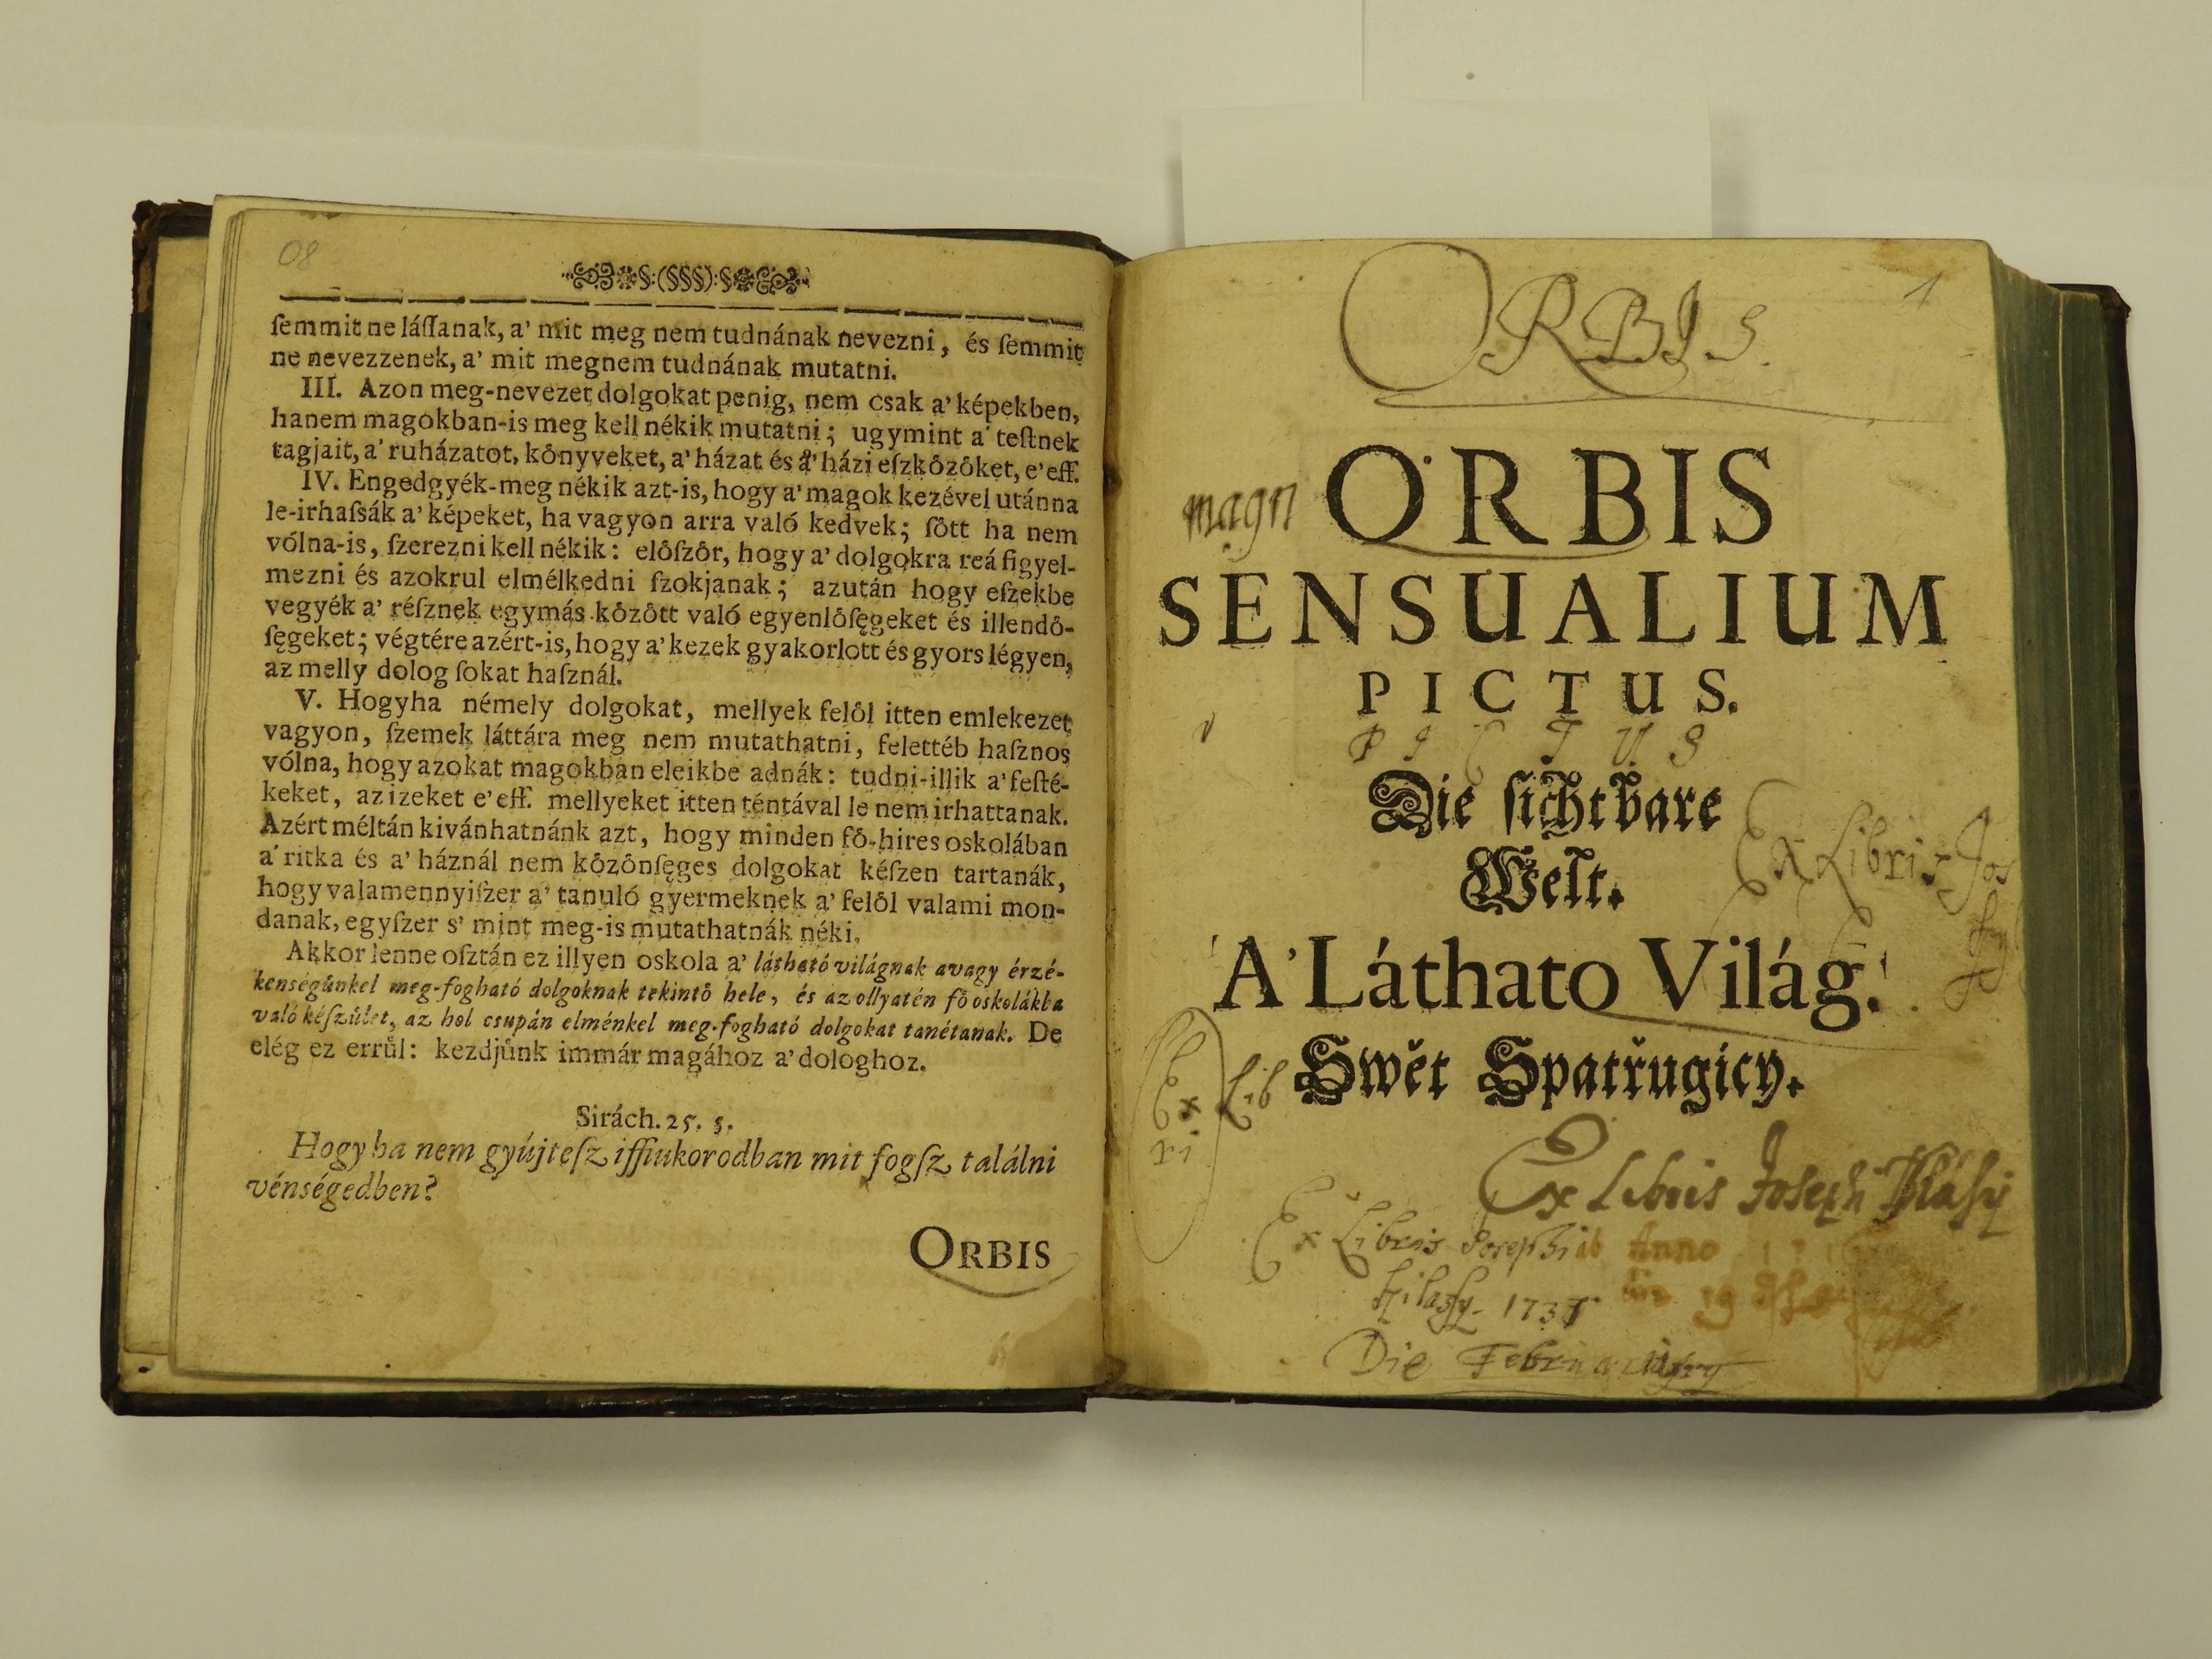 08
ſemmit ne láſſanak, a' mit meg nem tudnának nevezni, és ſemmit
ne nevezzenek, a' mit megnem tudnának mutatni.
III. Azon meg-nevezet dolgokat penig, nem csak a' képekben,
hanem magokban-is meg kell nékik mutatni; ugymint a' teſtnek
tagjait, a' ruházatot, kőnyveket, a' házat és a' házi eſzkőzőket, e' eff.
IV. Engedgyék-meg nékik azt-is, hogy a' magok kezével utánna
le-irhaſsák a' képeket, ha vagyon arra való kedvek; ſőtt ha nem
vólna-is, ſzerezni kell nékik: elősſzőr, hogy a' dolgokra reá figyel-
mezni és azokrul elmélkedni ſzokjanak; azután hogy eſzekbe
vegyék a' réſznek egymás kőzőtt való egyenlőſęgeket és illendő-
ſęgeket; végtére azért-is, hogy a' kezek gyakorlott és gyors légyen,
az melly dolog ſokat haſznál.
V. Hogyha némely dolgokat, mellyek felől itten emlekezet
vagyon, ſzemek láttára meg nem mutathatni, felettéb haſznos
vólna, hogy azokat magokban eleikbe adnák: tudni-illik a' feſté-
keket, az izeket e' eff. mellyeket itten téntával le nem irhattanak.
Azért méltán kivánhatnánk azt, hogy minden fő-hires oskolában
a' ritka és a' háznál nem kőzőnſęges dolgokat kéſzen tartanák,
hogy valamennyiſzer a' tanuló gyermeknek a' felől valami mon-
danak, egyſzer s' mint meg-is mutathatnák néki.
Akkor lenne oſztán ez illyen oskola a' látható világnak avagy érzé-
kenségůnkel meg-fogható dolgoknak tekintő hele, és az ollyatén fő oskolákba
való kéſzůlet, az hol csupán elménkel meg-fogható dolgokat tanétanak. De
elég ez errůl: kezdjůnk immár magához a' dologhoz.
Sirách. 25. 5.
Hogy ha nem gyújteſz iffiukorodban mit fogſz találni
vénségedben?
ORBIS
1
ORBIS.
magn
ORBIS
SENSUALIUM
PICTUS.
PICTUS
Die ſichtbare
Welt.
Ex Libris Jos
A' Láthato Világ.
Swět Spatřugicy.
Ex Lib
ri
Ex Libris Joseph
Ex Libris Josephi
Anno
1737
19
Die Februarii